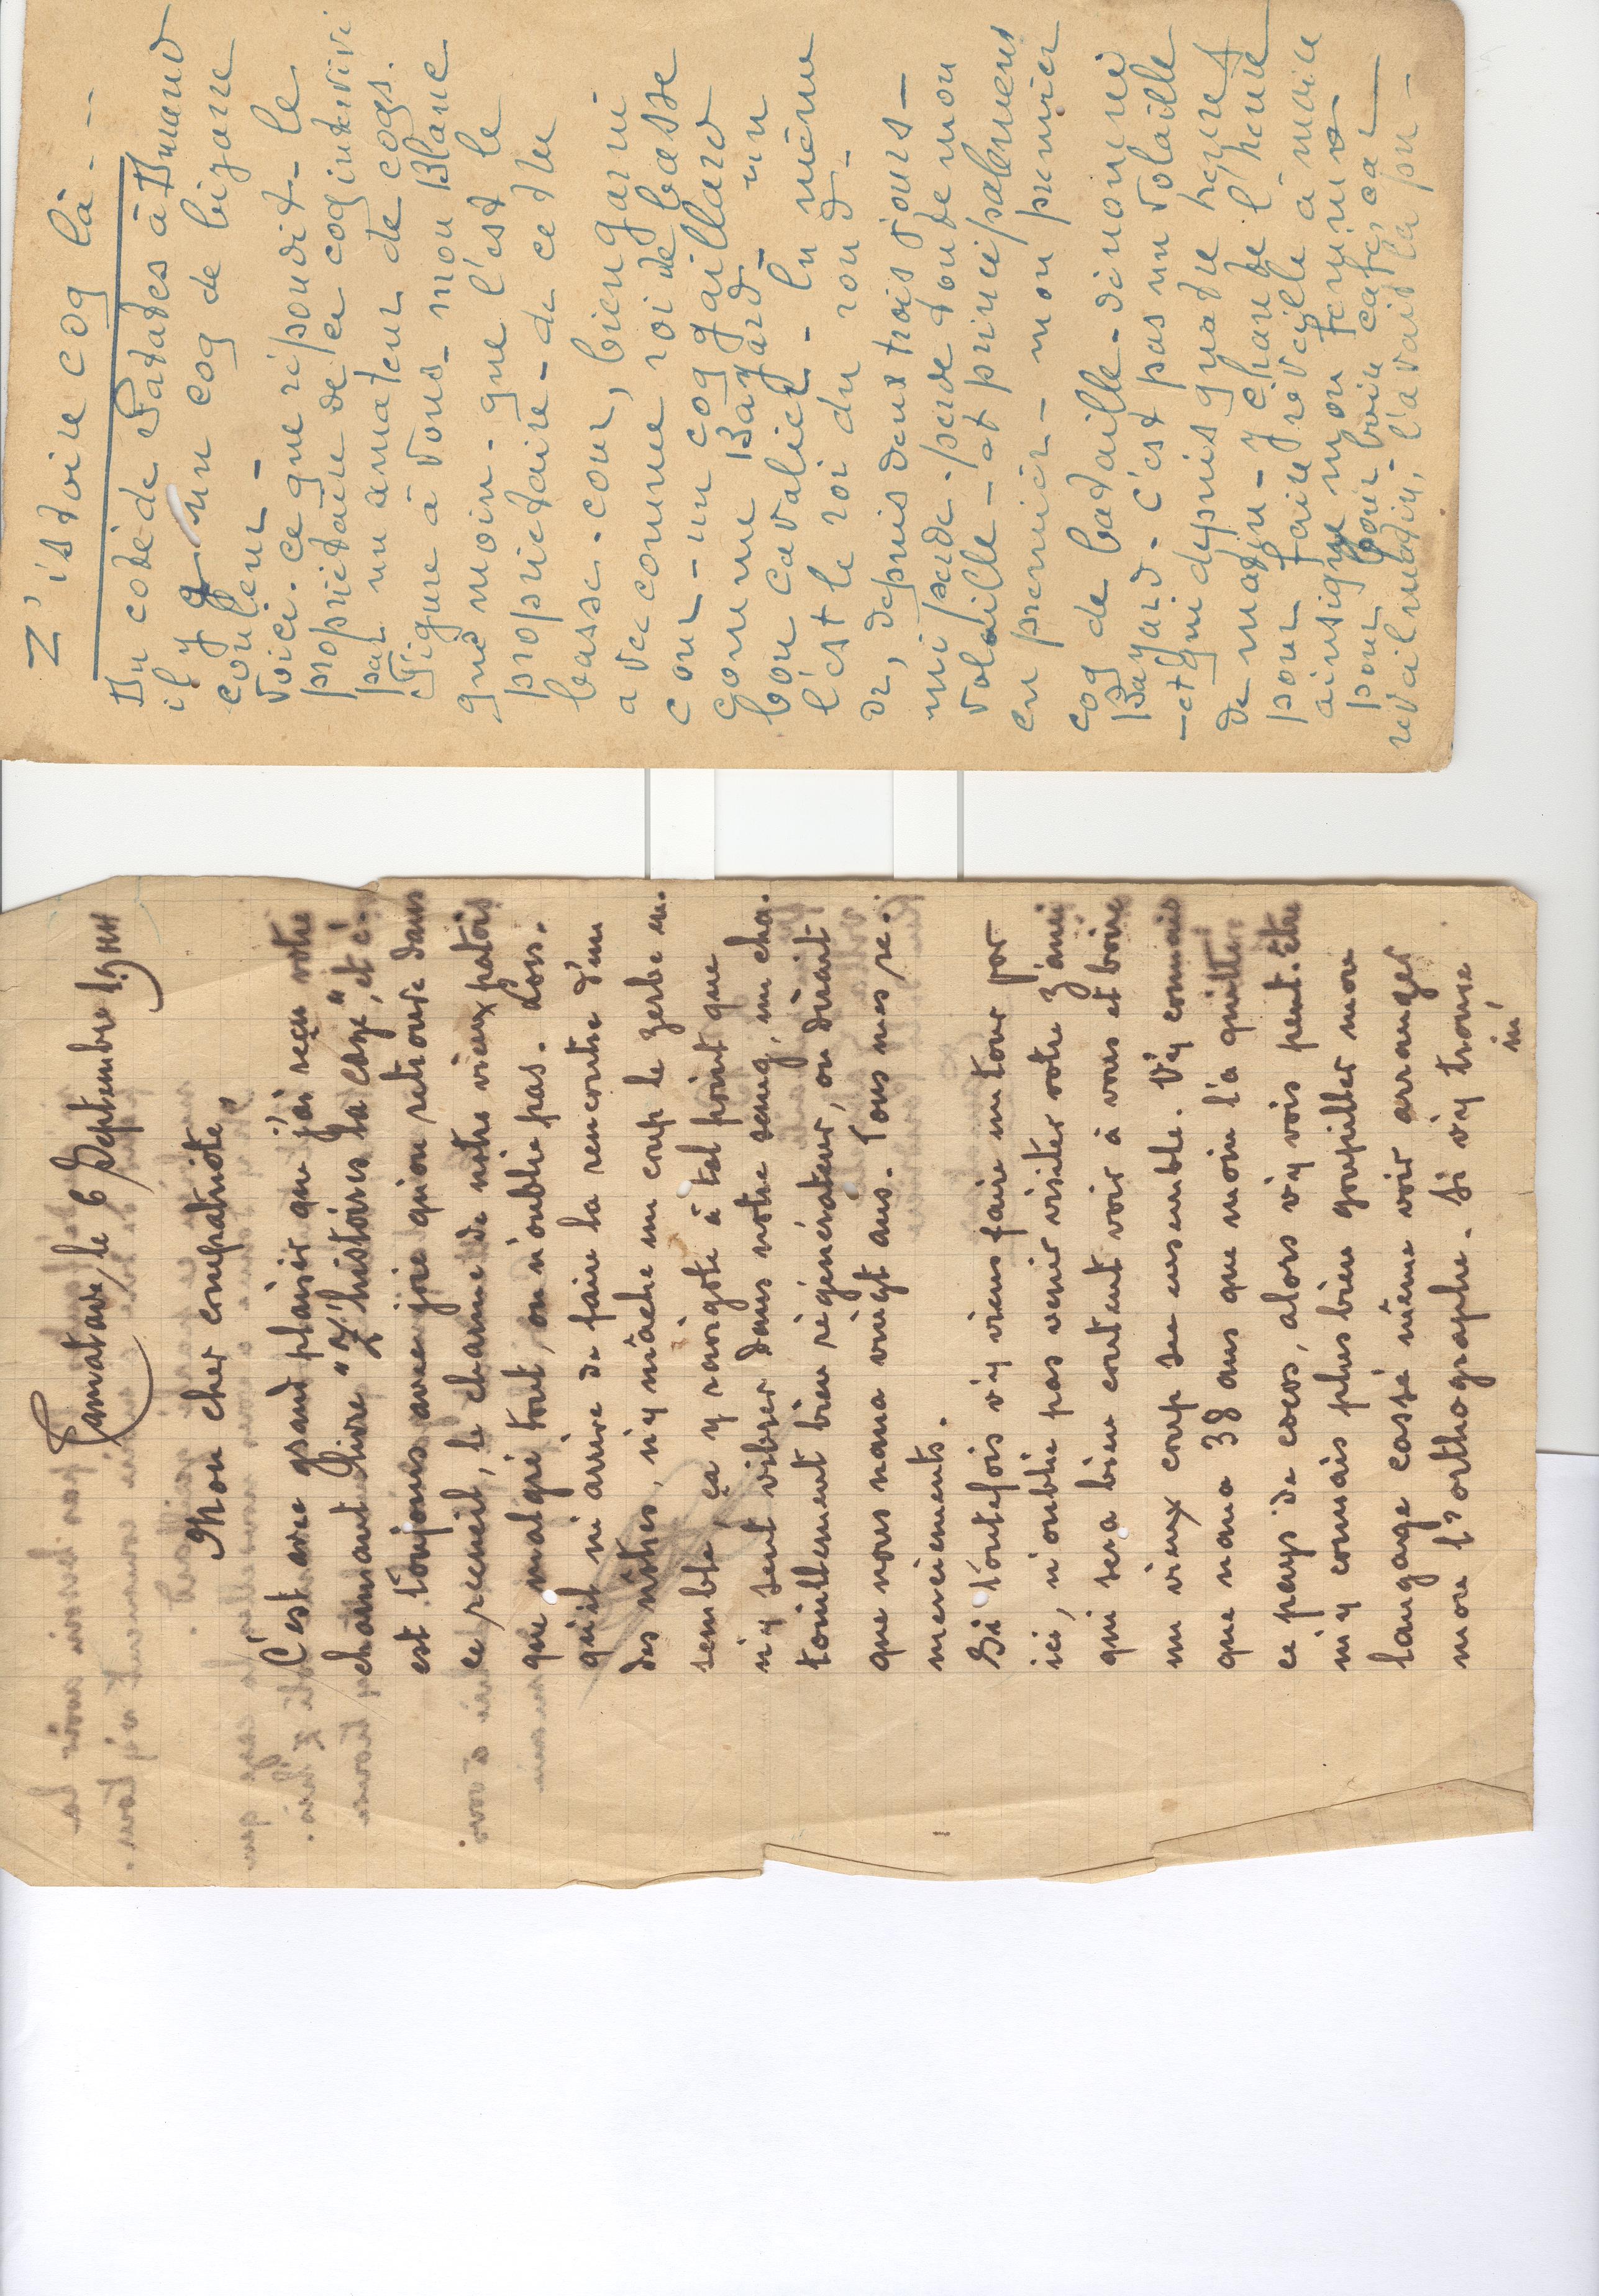 Tamatave, le 6 Septembre 1944
Mon cher compatriote,
C'est avec grand plaisir que j'ai reçu votre
charmant livre "Z'histoires la caze", et c'
est toujours avec joie qu'on retrouve dans
ce recueil, le charme de notre vieux patois
que malgré tout, on n'oublie pas. Lors-
qu'il m'arrive de faire la rencontre d'un
des nôtres, n'y m'ache un coup le zerbe en-
semble, ça y ravigote à tel point que
n'y sent vibrer dans notre sang, un cha-
touillement bien régénérateur, on dirait
que nous nana vingt ans. Tous mes re-
merciements.
Si toutefois v'y viens faire un tour por
ici, n'oublie pas venir visiter votre z'ami
qui sera bien content voir à vous et boire
un vieux coup sec ensemble. V'y connais
que nana 38 ans que moin l'a quitter
ce pays de cocos, alors v'y vois peut-être
n'y connais plus bien goupiller nore
langage cassé même voir arranger
nore l'orthographe. Si v'y trouve
in,
Z'istoire coq là - - -
Du coté de Patates à Durand
il y a un coq de bizarre
couleur -
Voici. ce que répondit - le
propriétaire de ce coq intervivi
par un amateur de coqs.
Figure à Vous - mon Blanc
què moin - que l'est le
propriétaire - de cet du
basse-cour, bien garni
avec comme roi de basse
cour - un coq gaillard
comme Bayard - un
bon cavalier - lu même
l'est le roi du rond -
de, depuis deux trois jours -
mi perde - perde tout mon
volaille - et principalement
en premier - mon premier
coq de bataille - dénommé
Bayard - c'est pas un volaille
- et qui depuis quatre heures
de matin - y chante l'heure
pour faire réveille à moin
ainsi que mon femme
pour boire café car
reveil matin, l'avait la pu -